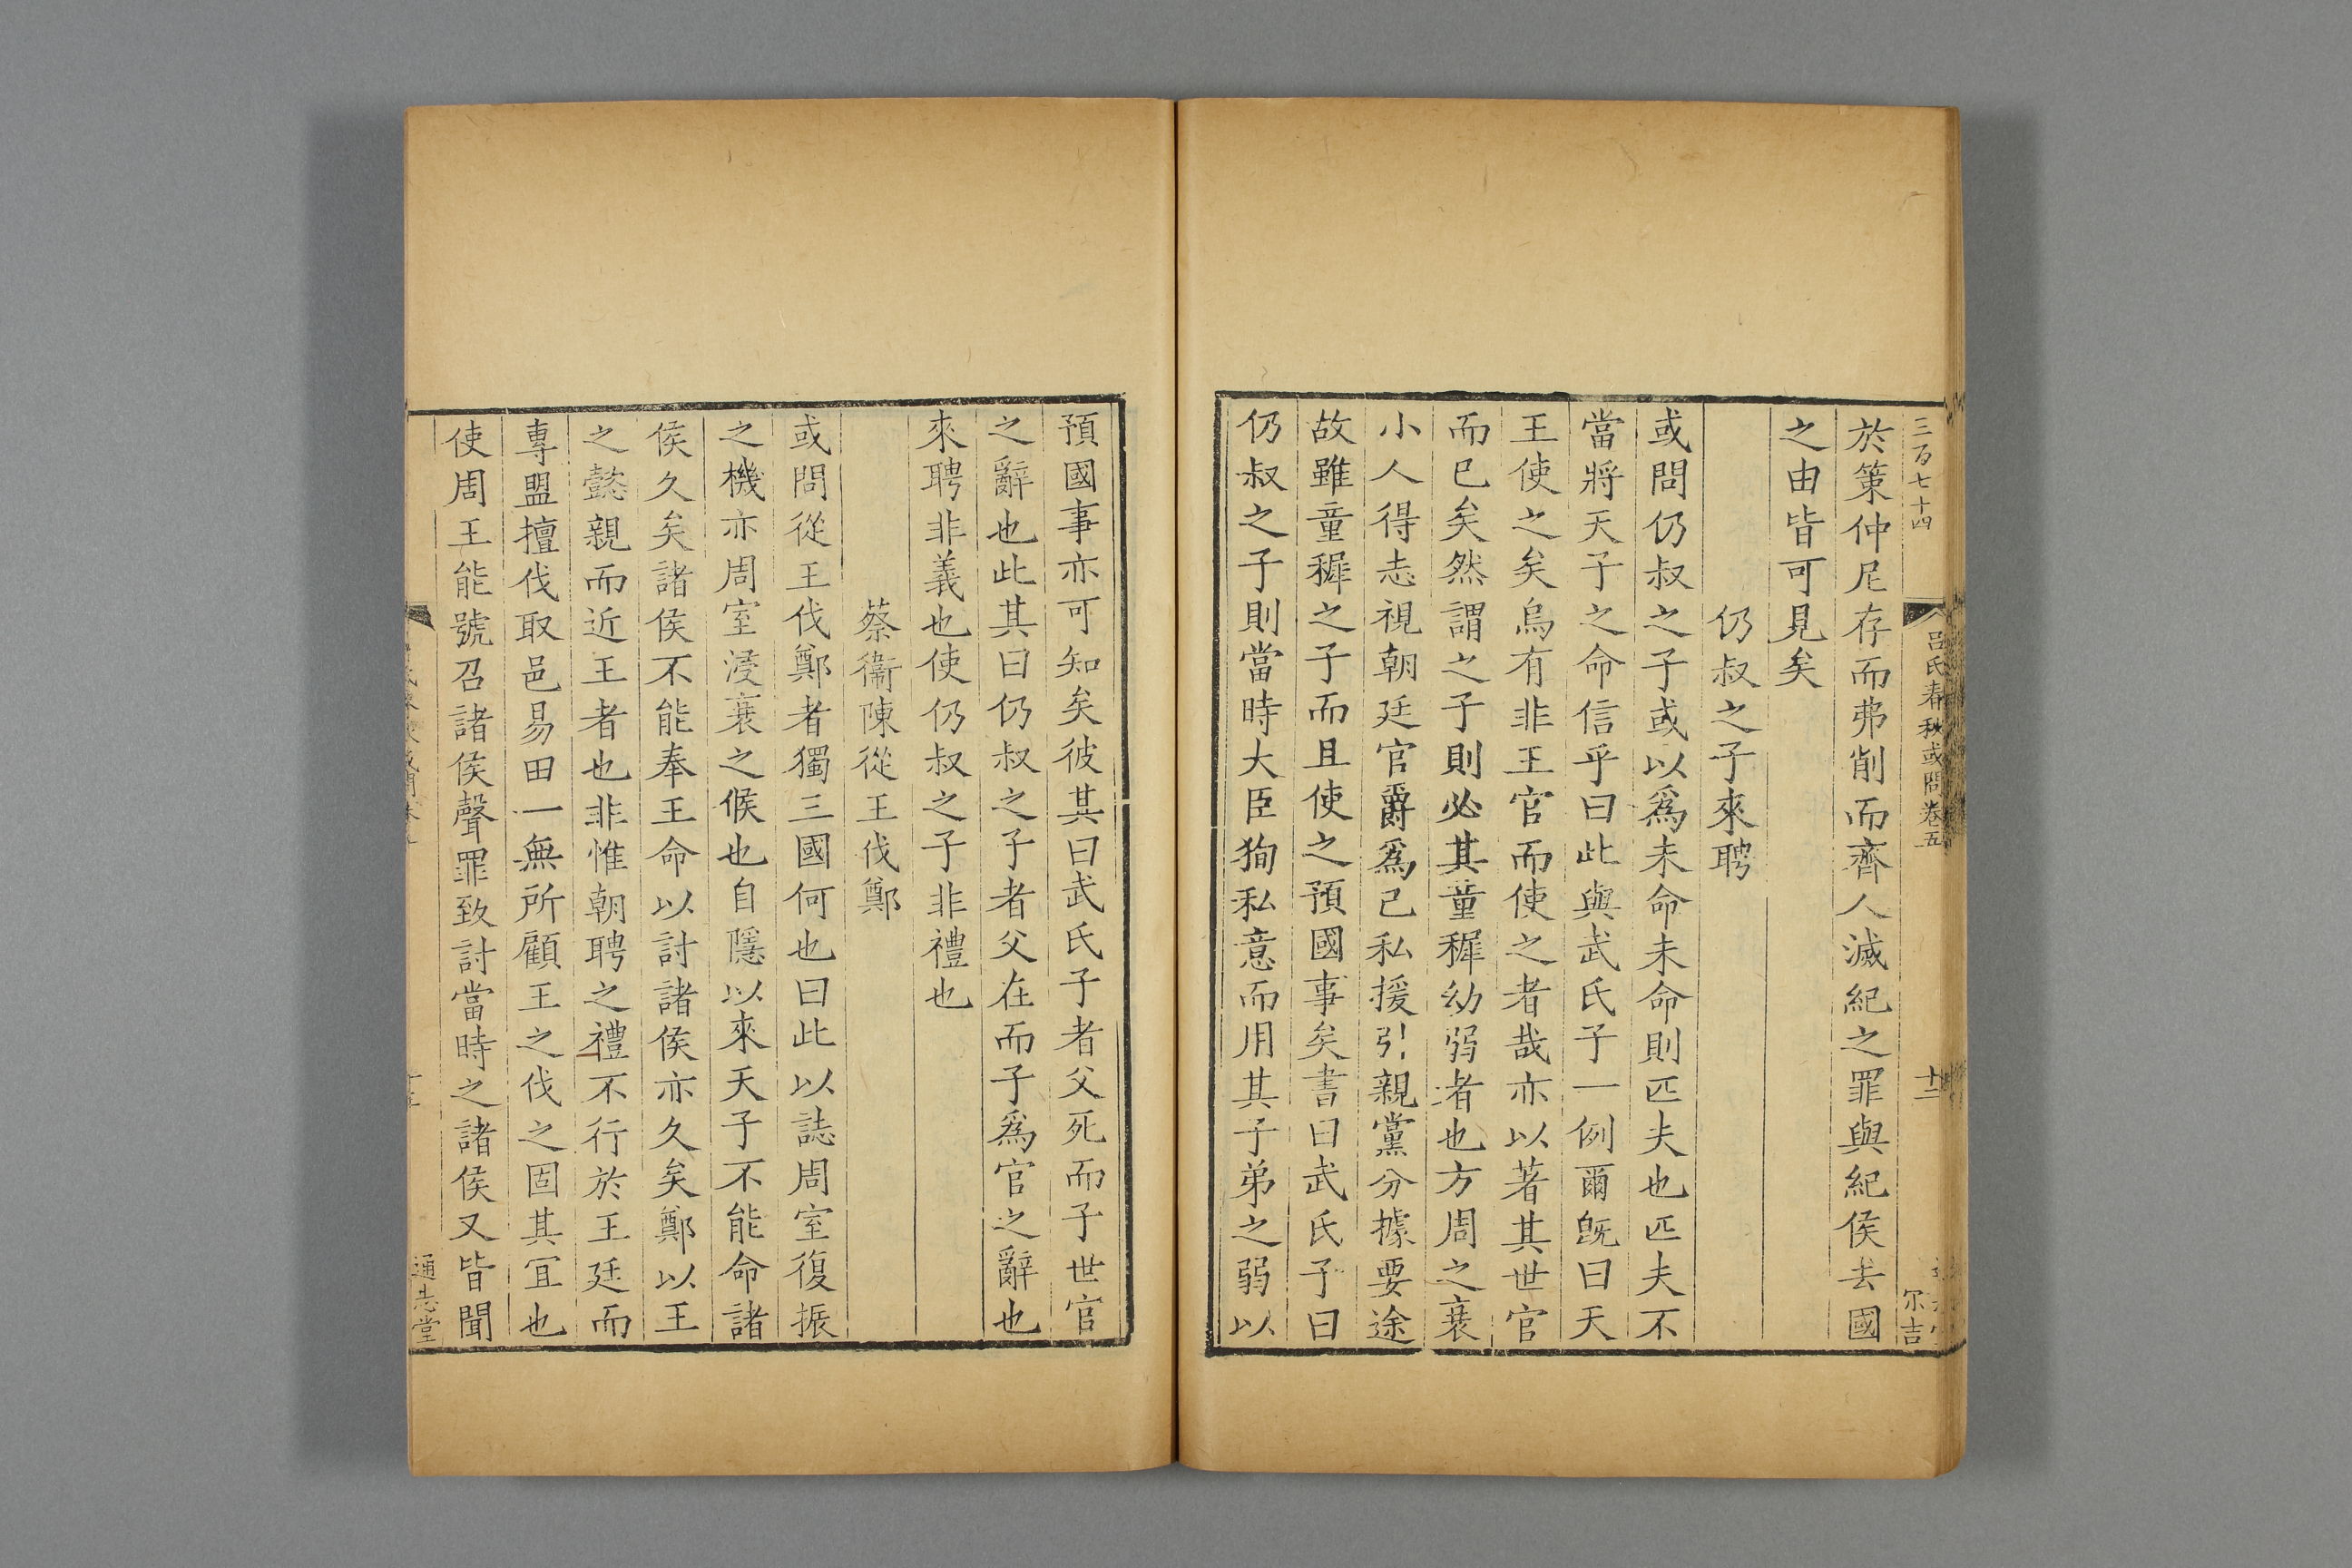 三百七十四
呂氏春秋或問卷五
十二
尔吉
於策仲尼存而弗削而齊人滅紀之罪與紀侯去國
之由皆可見矣
仍叔之子來聘
或問仍叔之子或以爲未命未命則匹夫也匹夫不
當將天子之命信乎曰此與武氏子一例爾旣曰天
王使之矣烏有非王官而使之者哉亦以著其世官
而已矣然謂之子則必其童穉幼弱者也方周之衰
小人得志視朝廷官爵爲己私援引親黨分據要途
故雖童穉之子而且使之預國事矣書曰武氏子曰
仍叔之子則當時大臣狥私意而用其子弟之弱以
預國事亦可知矣彼其曰武氏子者父死而子世官
之辭也此其曰仍叔之子者父在而子爲官之辭也
來聘非義也使仍叔之子非禮也
蔡衞陳從王伐鄭
或問從王伐鄭者獨三國何也曰此以誌周室復振
之機亦周室浸衰之候也自隱以來天子不能命諸
侯久矣諸侯不能奉王命以討諸侯亦久矣鄭以王
之懿親而近王者也非惟朝聘之禮不行於王廷而
專盟擅伐取邑易田一無所顧王之伐之固其宜也
使周王能號召諸侯聲罪致討當時之諸侯又皆聞
通志堂